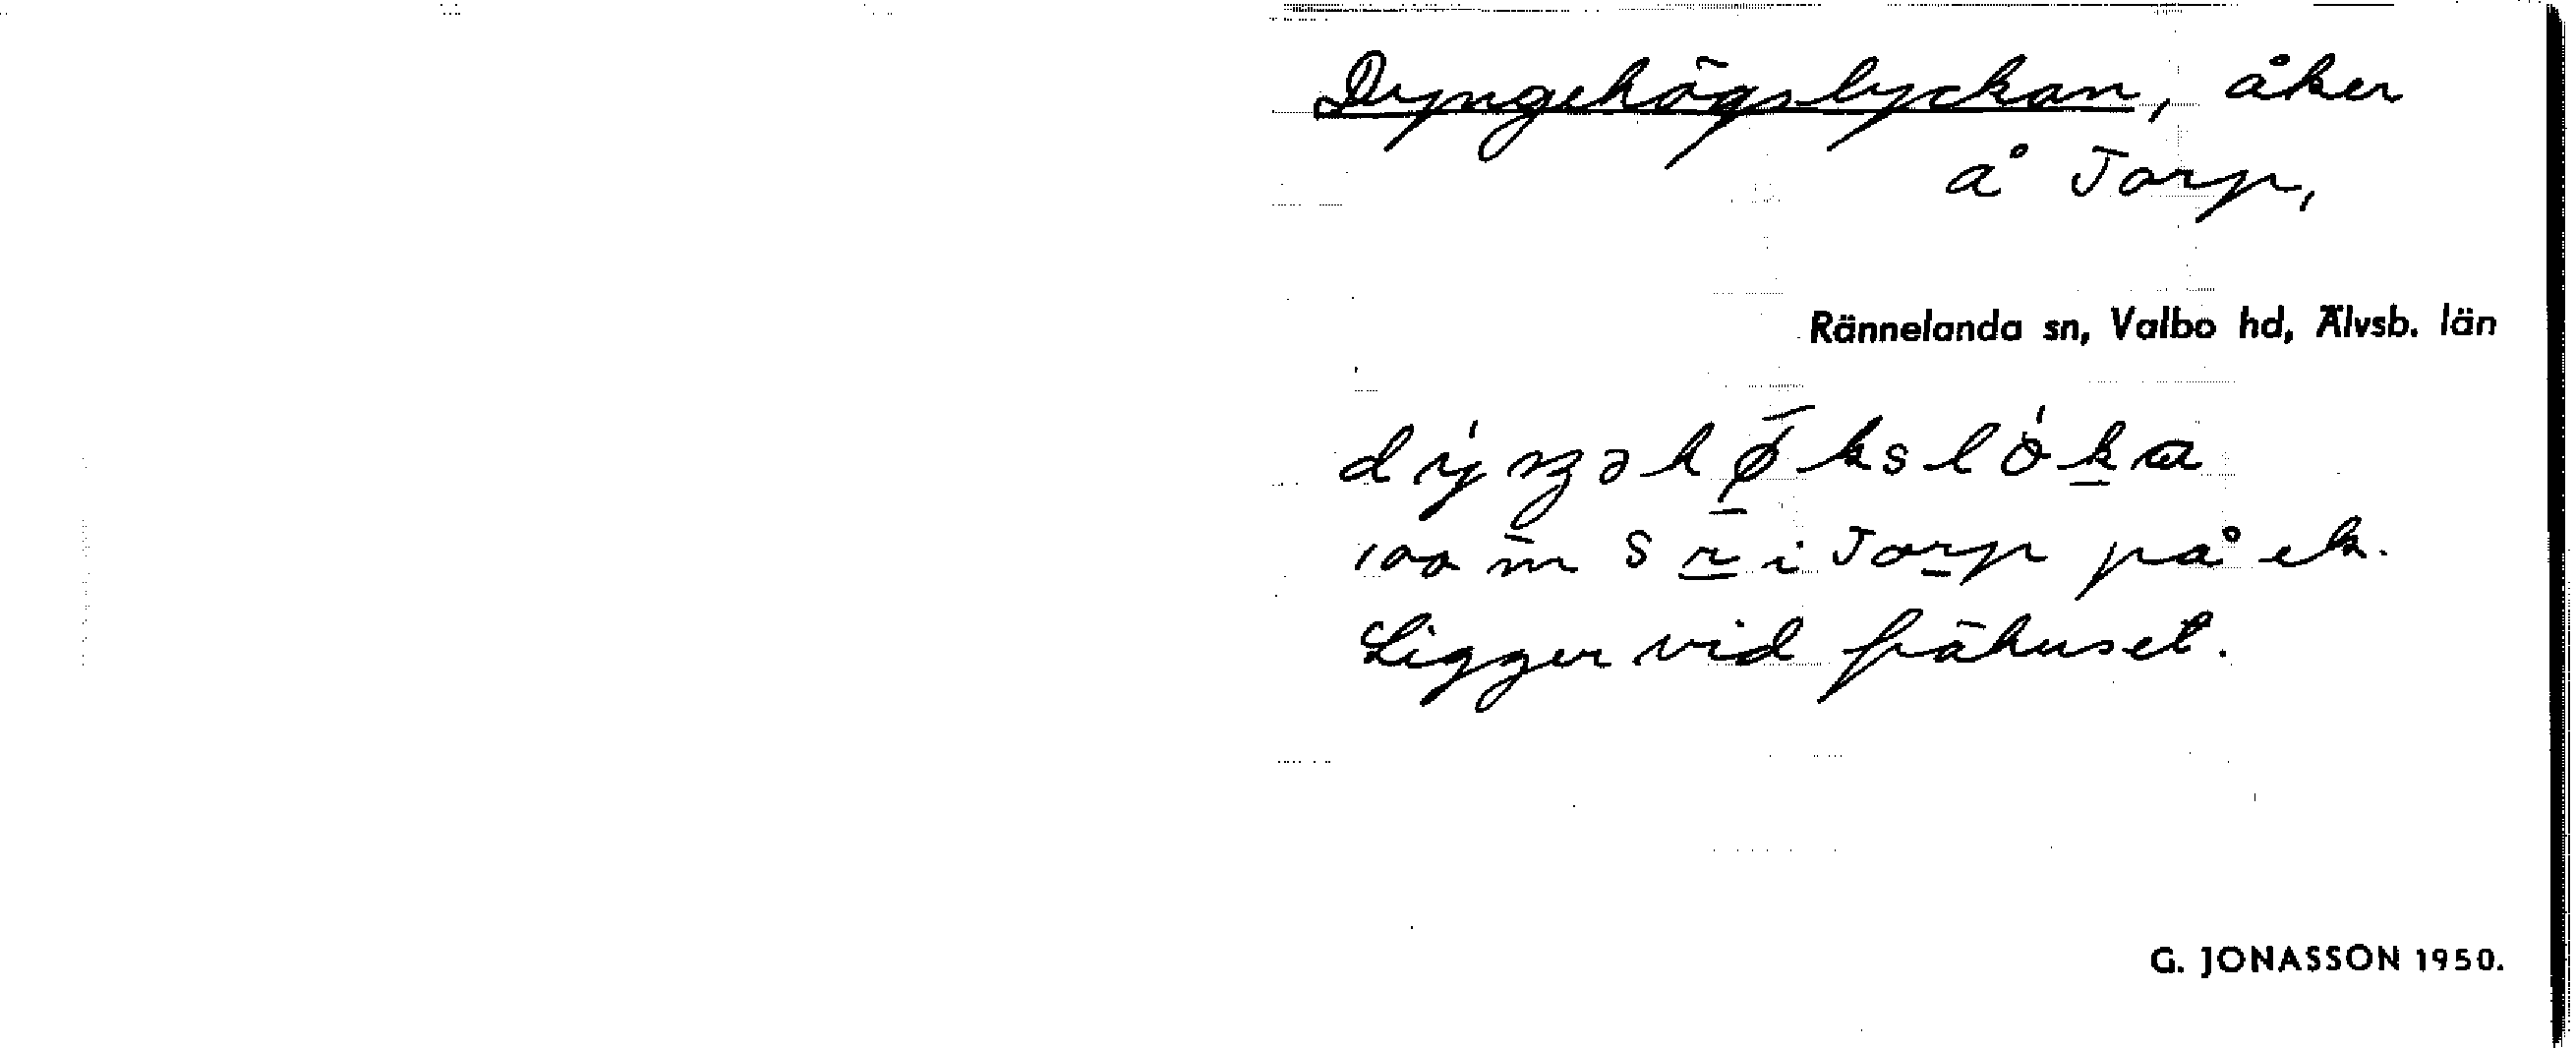 Dyngehögslyckan, åker
å Torp,
Rännelanda sn, Valbo hd, Älvsb. län
dýŋəhø̄kslȯ́ka
100 m S r i Torp på ek.
Ligger vid fähuset.
G. JONASSON 1950.